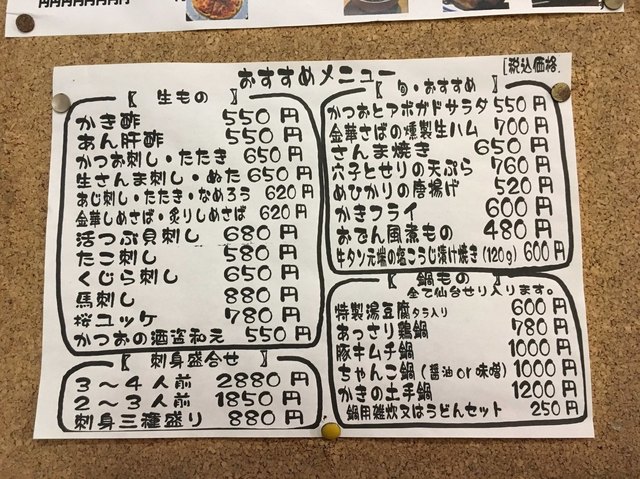 円円円円円円円
おすすめメニュー
[税込価格.
【 生もの 】
かき酢 550円
あん肝酢 550円
かつお刺し・たたき 650円
生さんま刺し・ぬた 650円
あじ刺し・たたき・なめろう 620円
金華しめさば・炙りしめさば 620円
活つぶ貝刺し 680円
たこ刺し 580円
くじら刺し 650円
馬刺し 880円
桜ユッケ 780円
かつおの酒盗和え 550円
【 刺身盛合せ 】
3~4人前 2880円
2~3人前 1850円
刺身三種盛り 880円
【 旬・おすすめ 】
かつおとアボガドサラダ 550円
金華さばの燻製生ハム 700円
さんま焼き 650円
穴子とせりの天ぷら 760円
めひかりの唐揚げ 520円
かきフライ 600円
おでん風煮もの 480円
牛タン元端の塩こうじ漬け焼き(120g) 600円
【 鍋もの 】
全て仙台せり入ります。
特製湯豆腐タラ入り 600円
あっさり鶏鍋 780円
豚キムチ鍋 1000円
ちゃんこ鍋(醤油or味噌) 1000円
かきの土手鍋 1200円
鍋用雑炊又はうどんセット 250円